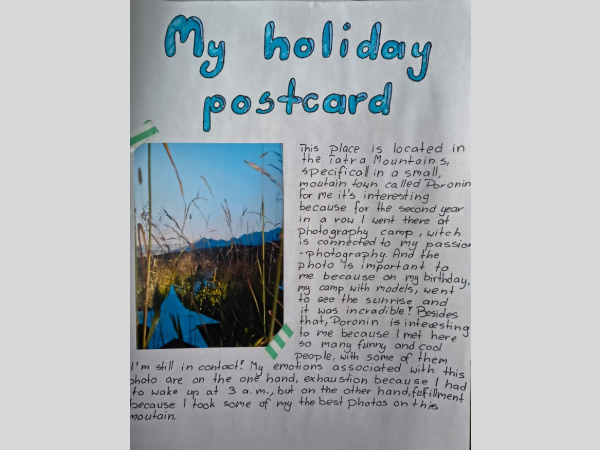 My holiday
postcard
This place is located in
the Tatra Mountains,
specificall in a small,
moutain town called Poronin
For me it's interesting
because for the second year
in a row I went there at
photography camp, witch
is connected to my passion
-photography. And the
photo is important to
me because on my birthday,
my camp with models, went
to see the sunrise and
it was incradible! Besides
that, Poronin is interesting
to me because I met here
so many funny and cool
people, with some of them
I'm still in contact! My emotions associated with this
photo are on the one hand, exhaustion because I had
to wake up at 3 a.m., but on the other hand, fulfillment
because I took some of my the best photos on this
moutain.